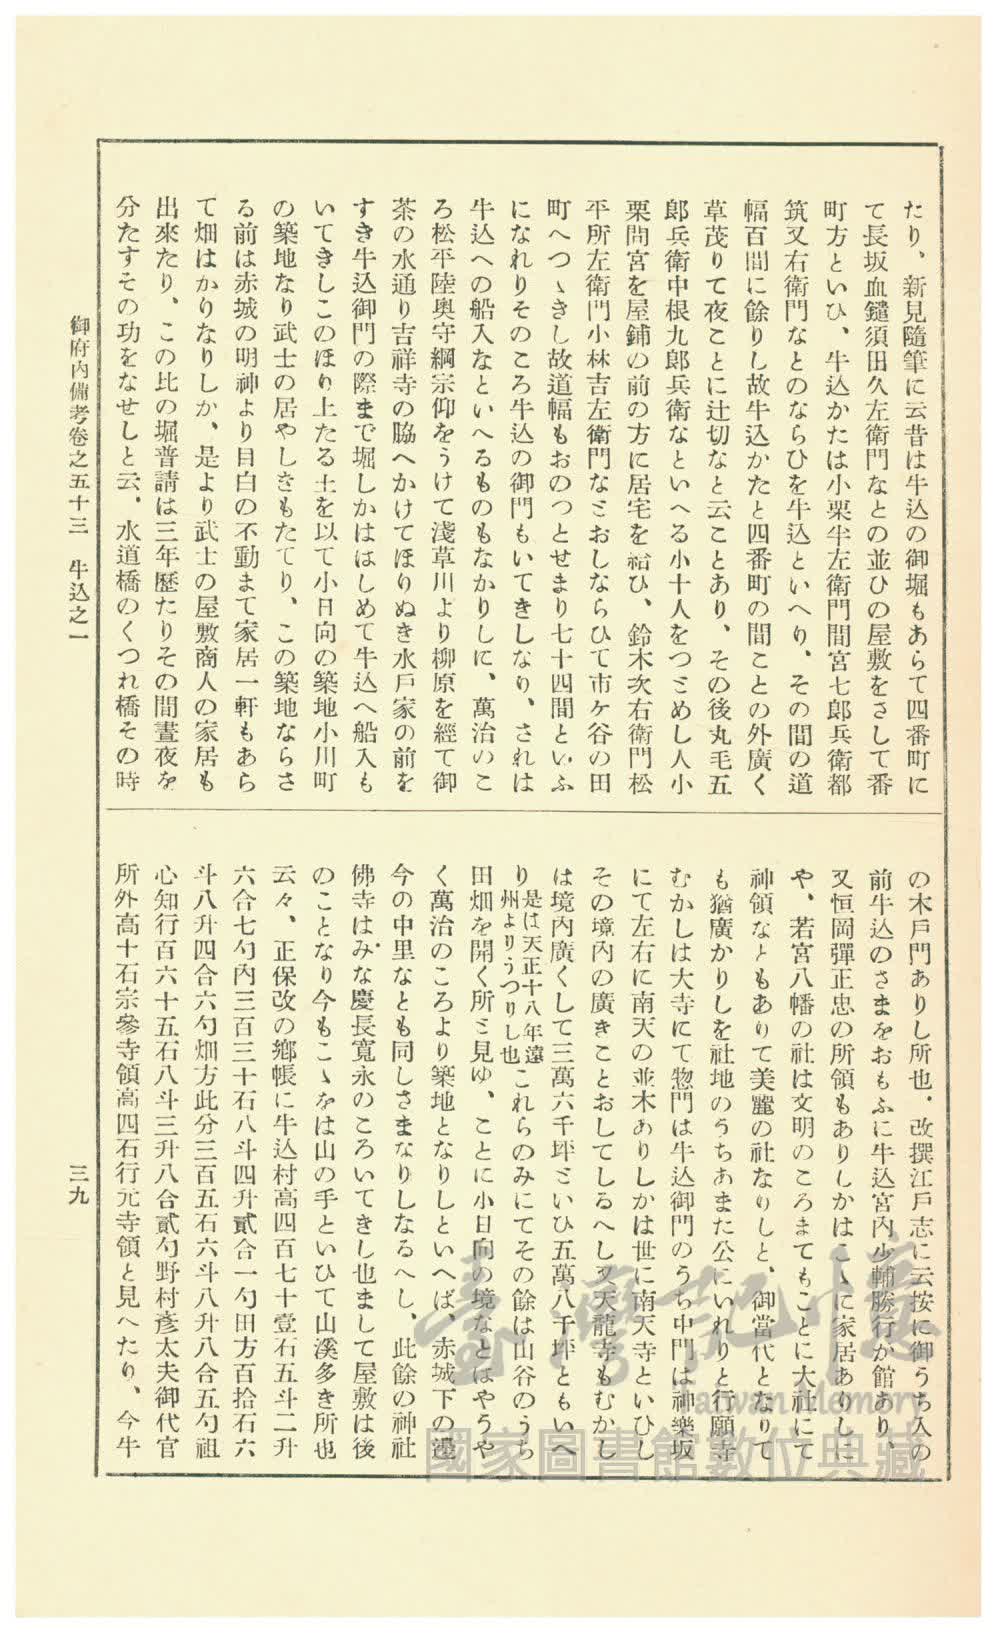 たり、新見隨筆に云昔は牛込の御堀もあらて四番町に
て長坂血鑓須田久左衞門なとの並ひの屋敷をさして番
町方といひ、牛込かたは小栗半左衞門間宮七郎兵衞都
筑又右衞門なとのならひを牛込といへり、その間の道
幅百間に餘りし故牛込かたと四番町の間ことの外廣く
草茂りて夜ことに辻切なと云ことあり、その後丸毛五
郎兵衞中根九郎兵衞なといへる小十人をつとめし人小
栗間宮を屋鋪の前の方に居宅を給ひ、鈴木次右衞門松
平所左衞門小林吉左衞門なとおしならひて市ケ谷の田
町へつゝきし故道幅もおのつとせまり七十四間といふ
になれりそのころ牛込の御門もいてきしなり、されは
牛込への船入なといへるものもなかりしに、萬治のこ
ろ松平陸奧守綱宗仰をうけて淺草川より柳原を經て御
茶の水通り吉祥寺の脇へかけてほりぬき水戸家の前を
すき牛込御門の際まで堀しかははしめて牛込へ船入も
いてきしこのほり上たる土を以て小日向の築地小川町
の築地なり武士の居やしきもたてり、この築地ならさ
る前は赤城の明神より目白の不動まて家居一軒もあら
て畑はかりなりしか、是より武士の屋敷商人の家居も
出來たり、この比の堀普請は三年歷たりその間晝夜を
分たすその功をなせしと云、水道橋のくつれ橋その時
の木戸門ありし所也、改撰江戸志に云按に御うち入の
前牛込のさまをおもふに牛込宮内少輔勝行か館あり、
又恒岡彈正忠の所領もありしかはこゝに家居ありしに
や、若宮八幡の社は文明のころまてもことに大社にて
神領なともありて美麗の社なりしと、御當代となりて
も猶廣かりしを社地のうちあまた公にいれりと行願寺
むかしは大寺にて惣門は牛込御門のうち中門は神樂坂
にて左右に南天の並木ありしかは世に南天寺といひし
その境内の廣きことおしてしるへし又天龍寺もむかし
は境内廣くして三萬六千坪といひ五萬八千坪ともいへ
り是は天正十八年遠州よりうつりし也これらのみにてその餘は山谷のうち
田畑を開く所と見ゆ、ことに小日向の境なとはやうや
く萬治のころより築地となりしといへば、赤城下の邊
今の中里なとも同しさまなりしなるへし、此餘の神社
佛寺はみな慶長寬永のころいてきし也まして屋敷は後
のことなり今もこゝをは山の手といひて山溪多き所也
云々、正保改の鄕帳に牛込村高四百七十壹石五斗二升
六合七勺内三百三十石八斗四升貳合一勺田方百拾石六
斗八升四合六勺畑方此分三百五石六斗八升八合五勺祖
心知行百六十五石八斗三升八合貳勺野村彥太夫御代官
所外高十石宗參寺領高四石行元寺領と見へたり、今牛
御府内備考卷之五十三　牛込之一
三九
臺灣記憶
Taiwan Memory
國家圖書館數位典藏